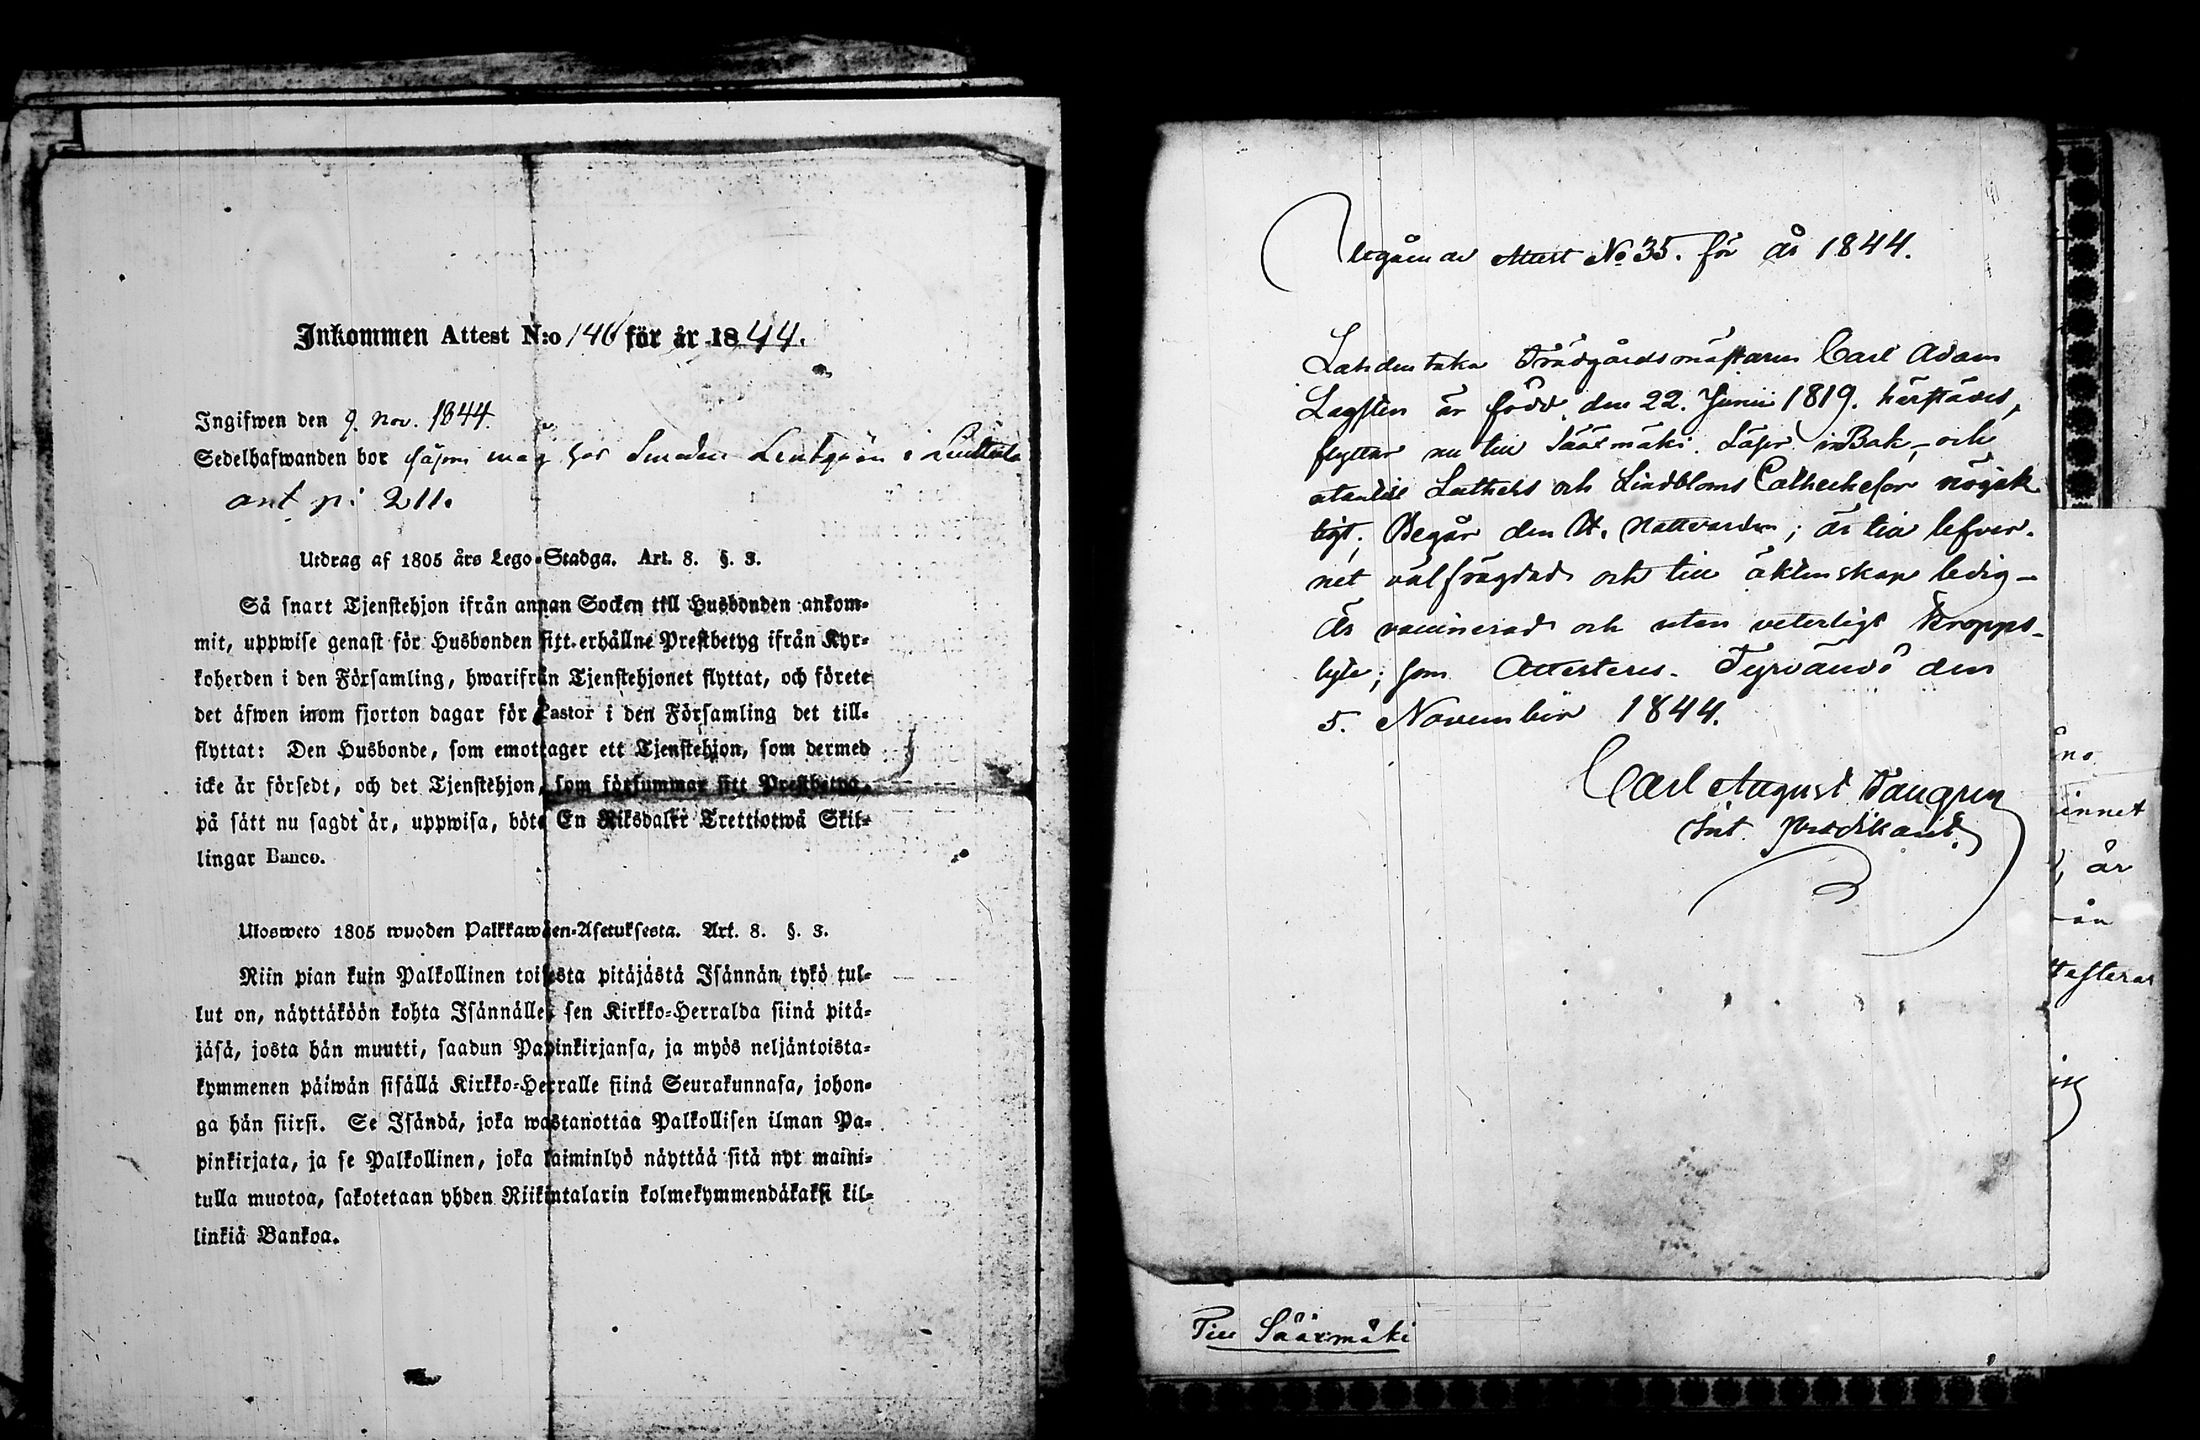 Inkommen Attest N:o 146 för år 1844.
Ingifwen den 9. Nov. 1844.
Sedelhafwanden bor såsom måg hos Smeden Lindgren i
ant. p: 211.
Utdrag af 1805 års Lego-Stadga. Art. 8. §. 3.
Så snart Tjenstehjon ifrån annan Socken till Husbonden ankom-
mit, uppwise genast för Husbonden sitt erhållne Prestbetyg ifrån Kyr-
koherden i den Församling, hwarifrån Tjenstehjonet flyttat, och förete
det äfwen inom fjorton dagar för Pastor i den Församling det till-
flyttat: Den Husbonde, som emottager ett Tjenstehjon, som dermed
icke är försedt, och det Tjenstehjon, som försummar sitt Prestbetyg,
på sätt nu sagdt är, uppwisa, böte En Riksdaler Trettiotwå Skil-
lingar Banco.
Ulosweto 1805 wuoden Palkkawäen-Asetuksesta. Art. 8. §. 3.
Niin pian kuin Palkollinen toisesta pitäjästä Isännän tykö tul-
lut on, näyttäköön kohta Isännälle, sen Kirkko-Herralda siinä pitä-
jäsä, josta hän muutti, saadun Papinkirjansa, ja myös neljäntoista-
kymmenen päiwän sisällä Kirkko-Herralle siinä Seurakunnasa, johon-
ga hän siirsi. Se Isändä, joka wastanottaa Palkollisen ilman Pa-
pinkirjata, ja se Palkollinen, joka laiminlyö näyttää sitä nyt maini-
tulla muotoa, sakotetaan yhden Riikintalarin kolmekymmendäkaksi kil-
linkiä Bankoa.
Utgående Attest No 35. för år 1844.
Lahdentaka Trädgårdsmästaren Carl Adam
Lagsten är född den 22. Junii 1819. härstädes,
flyttar nu till Sääxmäki. Läser i Bok, och
utantill Luthers och Lindbloms Catheckeser nöjak
ligt; Begår den H. Nattvarden; är till lefver-
net välfrägdad och till äktenskap ledig-
Är vaccinerad och utan veterligt kropps-
lyte; som Attesteres. Tyrvändö den
5. November 1844.
Carl August Tangren
Int. Predikant.
Till Sääxmäki
innet
är
ån
ttesterar